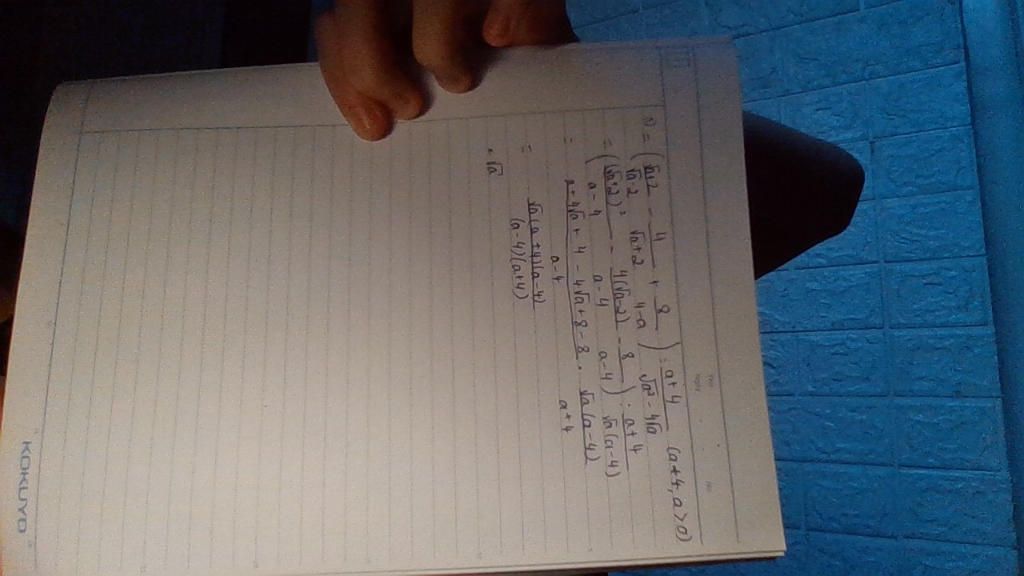 No.
D = (√a+2/√a-2 - 4/√a+2 + 8/4-a) : a+4/√a² - 4√a (a≠4, a>0)
= ((√a+2)²/a-4 - 4(√a-2)/a-4 - 8/a-4) : a+4/√a(a-4)
= a+4√a+4-4√a+8-8/a-4 . √a(a-4)/a+4
= √a(a+4)(a-4)/(a-4)(a+4)
= √a
KOKUYO